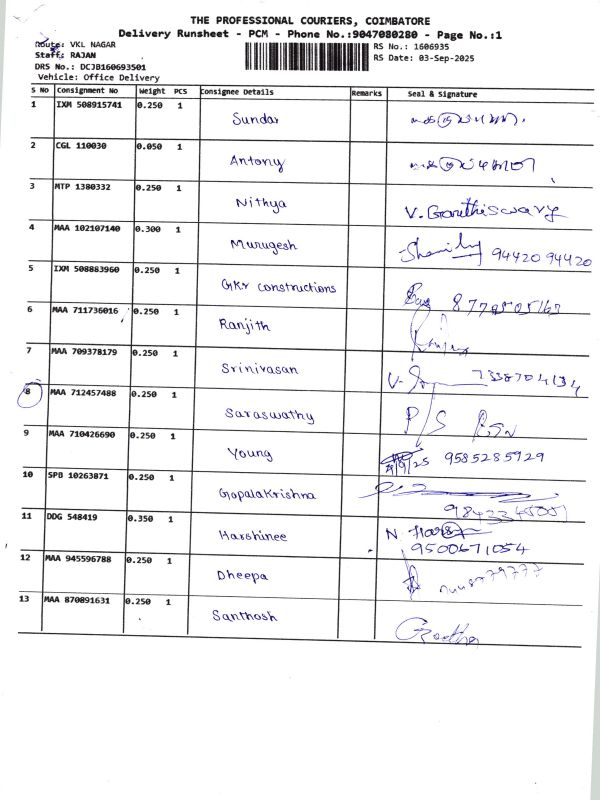 THE PROFESSIONAL COURIERS, COIMBATORE
Delivery Runsheet - PCM - Phone No.:9047080280 - Page No.:1
Route: VKL NAGAR
RS No.: 1606935
Staff: RAJAN
RS Date: 03-Sep-2025
DRS No.: DCJB160693501
Vehicle: Office Delivery
S No Consignment No Weight PCS Consignee Details Remarks Seal & Signature
1 IXM 508915741 0.250 1 Sundar
2 CGL 110030 0.050 1 Antony
3 MTP 1380332 0.250 1 Nithya
4 MAA 102107140 0.300 1 Murugesh 94420 94420
5 IXM 508883960 0.250 1 GKr constructions
6 MAA 711736016 0.250 1 Ranjith
7 MAA 709378179 0.250 1 Srinivasan 7338704134
8 MAA 712457488 0.250 1 Saraswathy P/S
9 MAA 710426690 0.250 1 Young 9585285929
10 SPB 10263871 0.250 1 Gopalakrishna
11 DDG 548419 0.350 1 Harshinee 9500671054
12 MAA 945596788 0.250 1 Dheepa
13 MAA 870891631 0.250 1 Santhosh